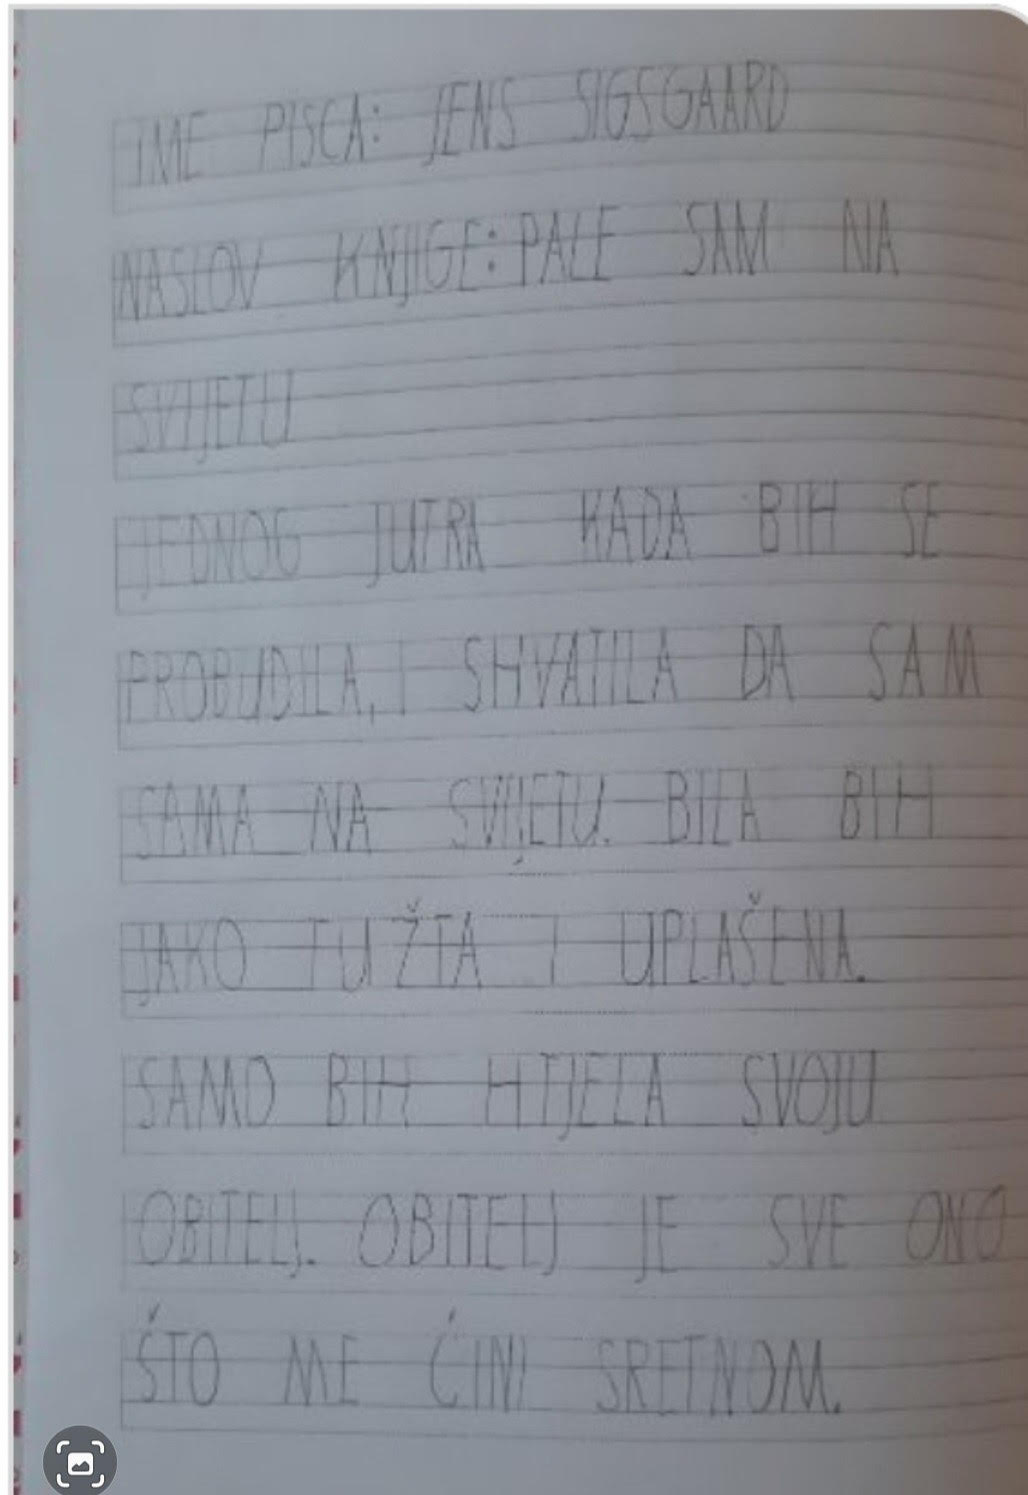 IME PISCA: JENS SIGSGAARD
NASLOV KNJIGE: PALE SAM NA
SVIJETU
JEDNOG JUTRA KADA BIH SE
PROBUDILA, I SHVATILA DA SAM
SAMA NA SVIJETU. BILA BIH
JAKO TUŽTA I UPLAŠENA.
SAMO BIH HTJELA SVOJU
OBITELJ. OBITELJ JE SVE ONO
ŚTO ME ĆINI SRETNOM.